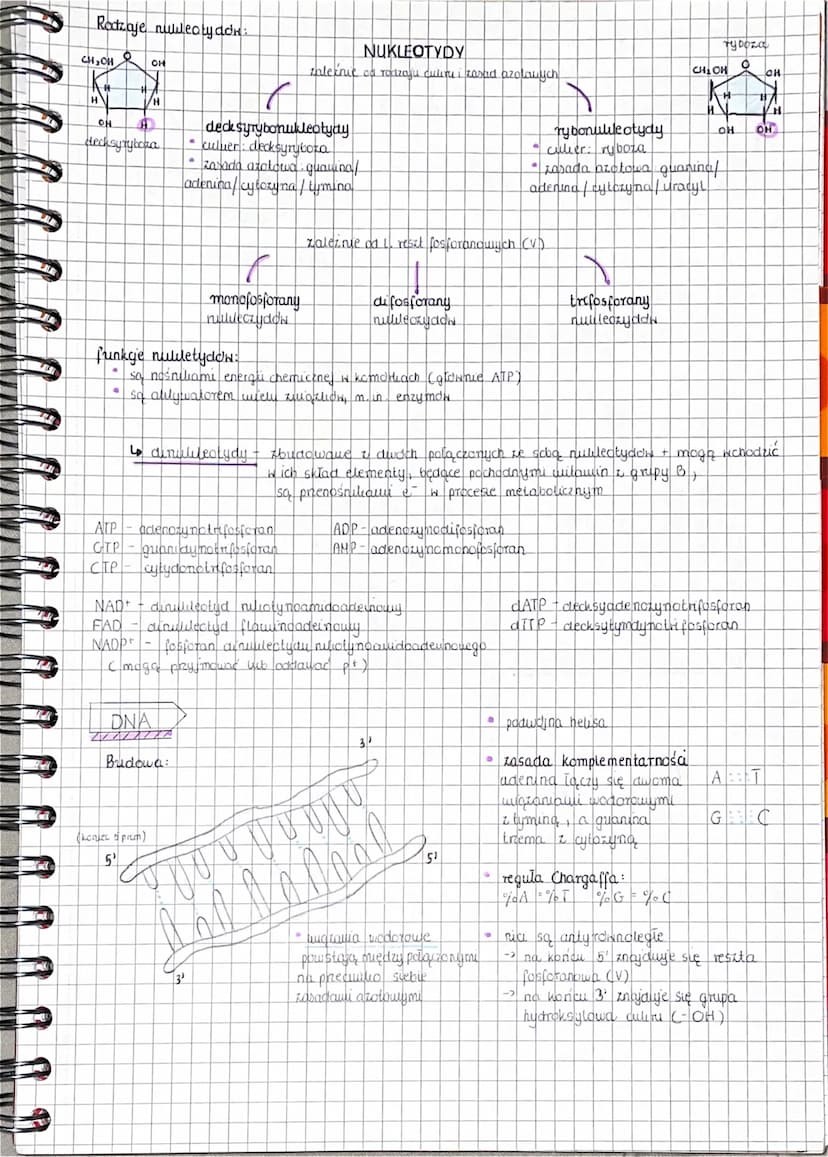 Rodzaje nukleotydów:
NUKLEOTYDY
ryboza
zależnie od rodzaju cukru i zasad azotowych
CH₂OH O OH
H H
H H
OH H
deoksyryboza
CH₂OH O OH
H H
H H
OH OH
deoksyrybonukleotydy
• cukier: deoksyryboza
• zasada azotowa: guanina/
adenina/cytozyna/tymina
rybonukleotydy
• cukier: ryboza
• zasada azotowa guanina/
adenina/cytozyna/uracyl
zależnie od l. reszt fosforanowych (V)
monofosforany
nukleozydów
difosforany
nukleozydów
trifosforany
nukleozydów
funkcje nukletydów:
• są nośnikami energii chemicznej w komórkach (głównie ATP)
• są aktywatorem wielu związków, m.in. enzymów
↳ dinukleotydy - zbudowane z dwóch połączonych ze sobą nukleotydów + mogą wchodzić
w ich skład elementy, będące pochodnymi witamin z grupy B,
są przenośnikami e⁻ w procesie metabolicznym
ATP - adenozynotrifosforan
GTP - guanidynotrifosforan
CTP - cytydonotrifosforan
ADP - adenozynodifosforan
AMP - adenozynomonofosforan
NAD⁺ - dinukleotyd nikotynoamidoadeinowy
FAD - dinukleotyd flawinoadeinowy
NADP⁺ - fosforan dinukleotydu nikotynoamidoadeinowego
(mogą przyjmować lub oddawać p⁺)
dATP - deoksyadenozynotrifosforan
dTTP - deoksytymdynotrifosforan
DNA
Budowa:
3'
(koniec 5 prim)
5'
5'
3'
• wiązania wodorowe
powstają między połączonymi
na przeciwko siebie
zasadami azotowymi
• podwójna helisa
• zasada komplementarności
adenina łączy się dwoma
wiązaniami wodorowymi
z tyminą, a guanina
trzema z cytozyną
A T
G C
• reguła Chargaffa:
%A = %T %G = %C
• nici są antyrównoległe
→ na końcu 5' znajduje się reszta
fosforanowa (V)
→ na końcu 3' znajduje się grupa
hydroksylowa cukru (-OH)